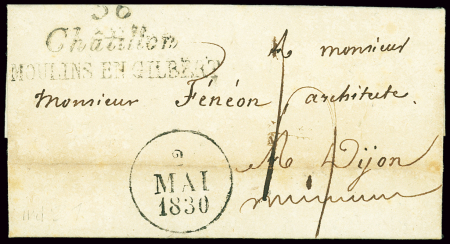 56
Châtillon
MOULINS EN GILBERT
A monsieur
Monsieur Fénéon architecte.
A Dijon
2
MAI
1830